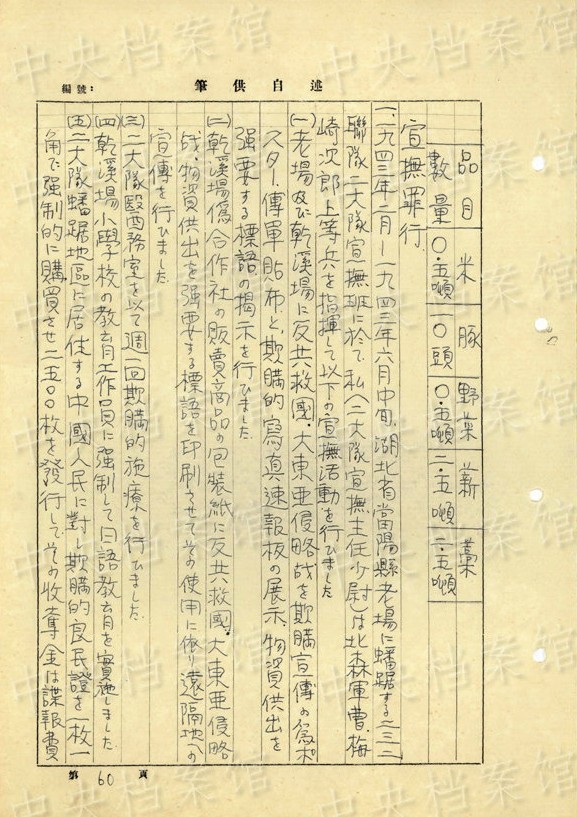 中央档案馆
述自供筆
編號：
品目 米 豚 野菜 薪 藁
數量 〇・五噸 一〇頭 〇・五噸 二・五噸 二・五噸
宣撫罪行
一、一九四三年二月～一九四三年六月中旬、湖北省當陽縣老場に蟠踞する二三二
聯隊二大隊宣撫班に於て、私(二大隊宣撫主任少尉)は北森軍曹、梅
崎次郎上等兵を指揮して以下の宣撫活動を行ひました
(一)老場及び乾溪場に反共救國、大東亜侵略戦を欺瞞宣傳の為ポ
スター、傳單貼布と、欺瞞的寫真速報板の展示、物資供出を
强要する標語の揭示を行ひました
(二)乾溪場僞合作社の販賣商品の包裝紙に反共救國、大東亜侵略
战、物資供出を强要する標語を印刷させてその使用に依り遠隔地への
宣傳を行ひました
(三)二大隊醫務室を以て週一回欺瞞的施療を行ひました
(四)乾溪場小學校の教育工作員に强制して日語教育を實施しました
(五)二大隊蟠踞地區に居住する中國人民に對し欺瞞的良民證を一枚一
角で强制的に購買させ二五〇〇枚を發行してその收奪金は諜報費
第 60 頁